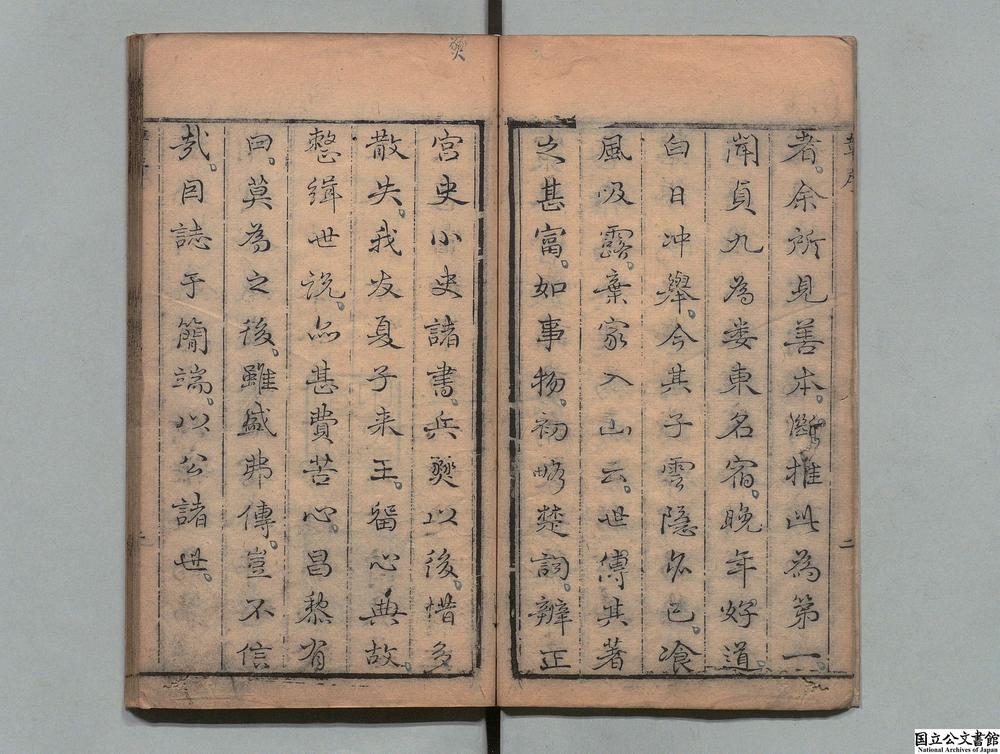 者。余所見善本。斷推此為第一。
聞貞九為娄東名宿。晚年好道。
白日冲舉。今其子雲隱亦已飡
風吸露。棄家入山云。世傳其著
之甚富。如事物。初略楚詞。辨正
宫史小史諸書。兵燹以後。惜多
散失。我友夏子来王。留心典故。
整緝世説。亦甚費苦心。昌黎有
曰。莫為之後。雖盛弗傳。豈不信
哉。因誌于簡端。以公諸世。
燹
国立公文書館
National Archives of Japan